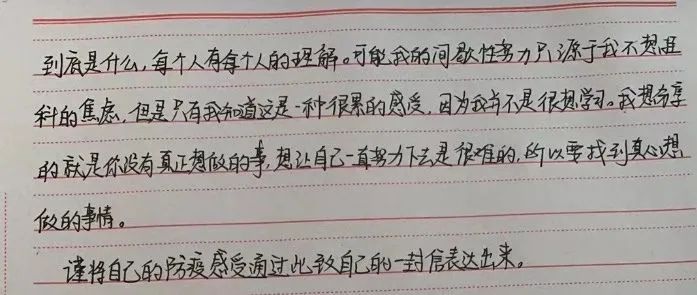 到底是什么，每个人有每个人的理解。可能我的间歇性努力只源于我不想挂
科的焦虑，但是只有我知道这是一种很累的感受，因为我并不是很想学习。我想分享
的就是你没有真正想做的事，想让自己一直努力下去是很难的，所以要找到真心想
做的事情。
谨将自己的防疫感受通过此致自己的一封信表达出来。